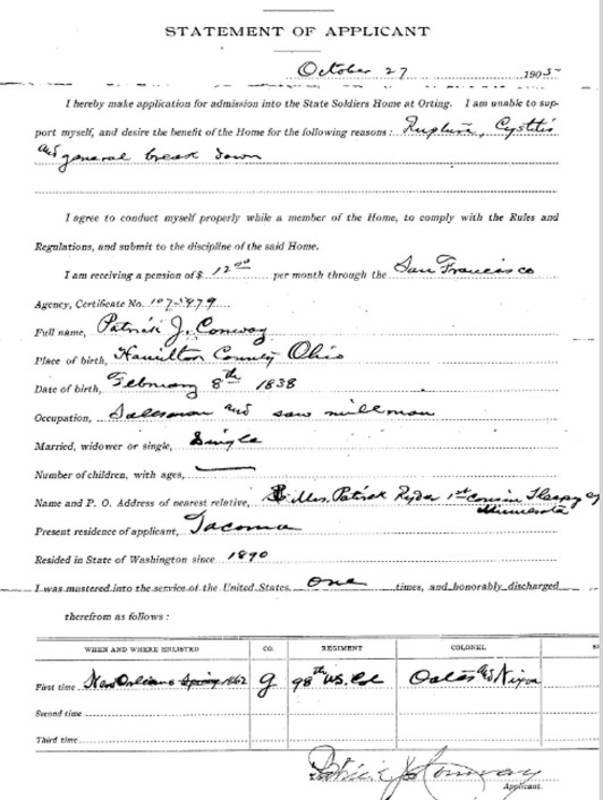 STATEMENT OF APPLICANT
October 27 1905
I hereby make application for admission into the State Soldiers Home at Orting. I am unable to sup-
port myself, and desire the benefit of the Home for the following reasons: Rupture, Cystitis
and general break down
I agree to conduct myself properly while a member of the Home, to comply with the Rules and
Regulations, and submit to the discipline of the said Home.
I am receiving a pension of $ 12 00 per month through the San Francisco
Agency, Certificate No. 1075979
Full name, Patrick J. Conway
Place of birth, Hamilton County Ohio
Date of birth, February 8th 1838
Occupation, Salesman and saw millman
Married, widower or single, Single
Number of children, with ages, —
Name and P. O. Address of nearest relative, Mrs. Patrick Ryder 1st cousin Sleepy Ey
Minnesota
Present residence of applicant, Tacoma
Resided in State of Washington since 1890
I was mustered into the service of the United States, One times, and honorably discharged
therefrom as follows:
WHEN AND WHERE ENLISTED CO. REGIMENT COLONEL
First time New Orleans Spring 1862 G 98th US. Col and Nixon
Second time
Third time
Patrick J Conway
Applicant.